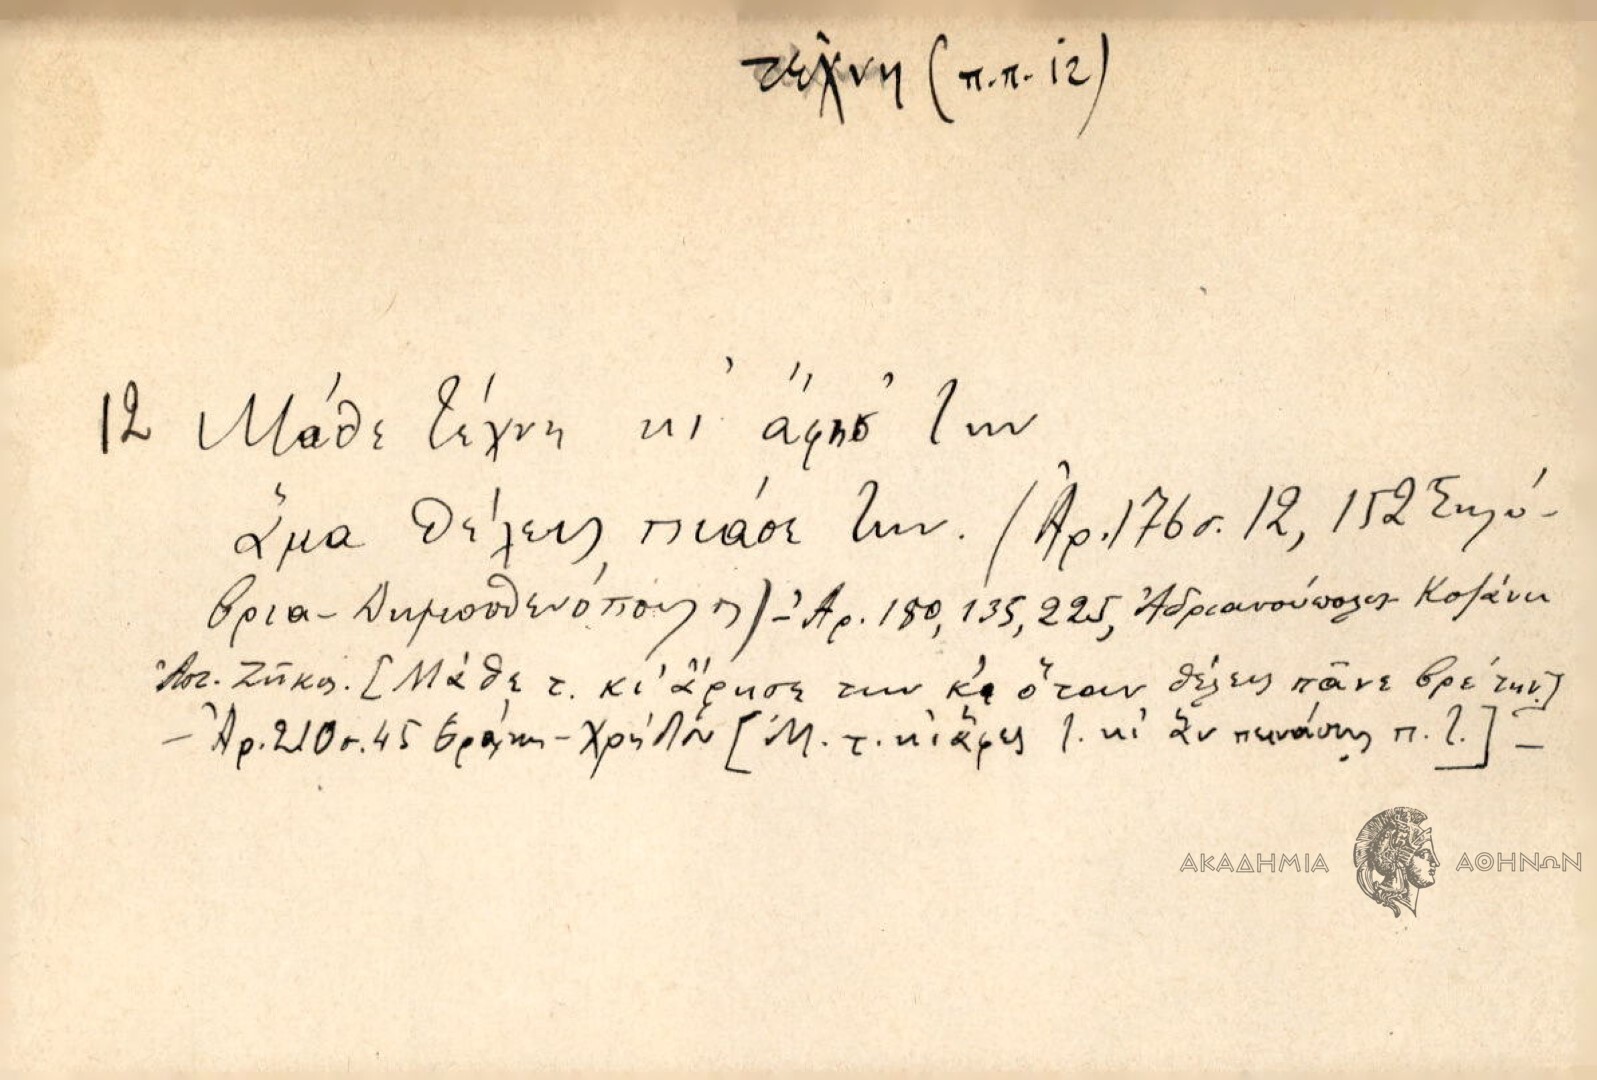 τέχνη (π.π. 12)
12 Μάθε τέχνη κι' ἄφησ' την
ἅμα θέλεις πιάσε την. (Ἀρ. 176 σ. 12, 152 Σηλύ-
βρια - Δημοσθενόπουλος) - Ἀρ. 180, 135, 225, Ἀδριανούπολις Κοζάνη
[Μάθε τ. κι' ἄφησε την κι ὅταν θέλεις πᾶνε βρέ την.]
- Ἀρ. 210 σ. 45 Θράκης - [Μ. τ. κι ἄφες τ. κι ἂν πεινάσῃς π. τ.] -
ΑΚΑΔΗΜΙΑ ΑΘΗΝΩΝ